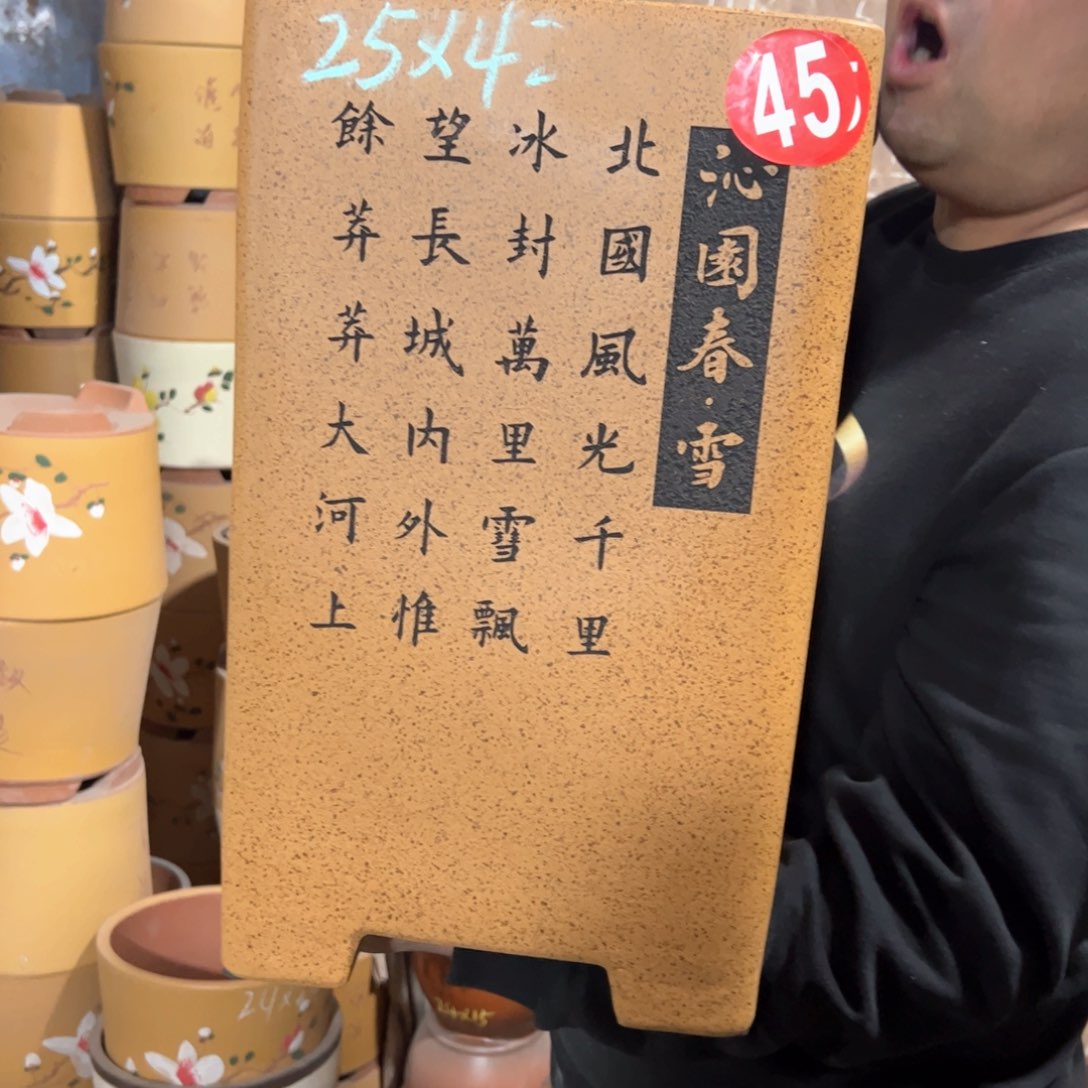 25×42
45
沁園春·雪
北國風光千里
冰封萬里雪飄
望長城内外惟
餘莽莽大河上